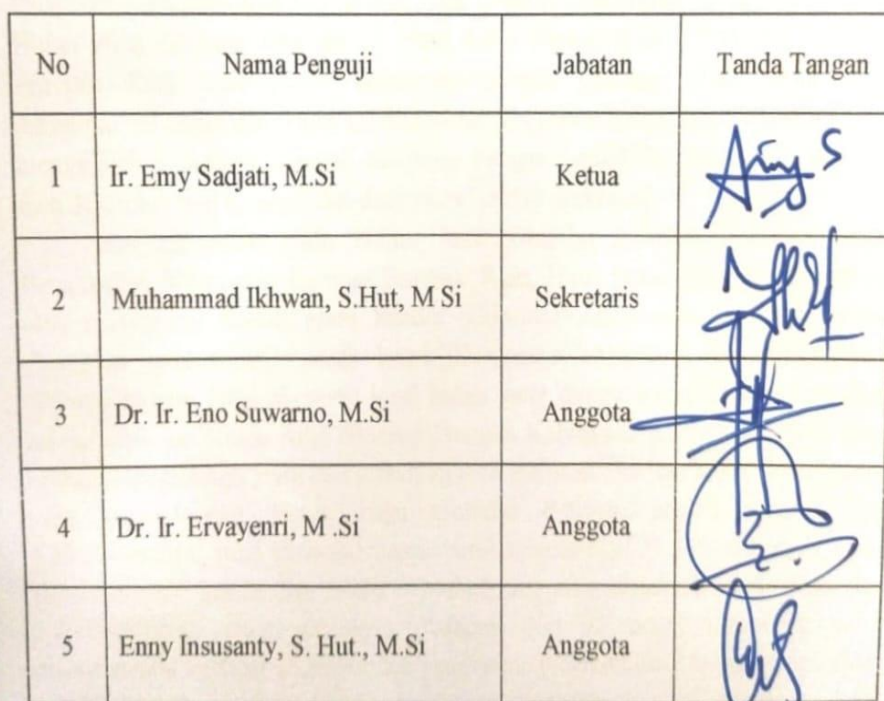 No Nama Penguji Jabatan Tanda Tangan
1 Ir. Emy Sadjati, M.Si Ketua
2 Muhammad Ikhwan, S.Hut, M Si Sekretaris
3 Dr. Ir. Eno Suwarno, M.Si Anggota
4 Dr. Ir. Ervayenri, M .Si Anggota
5 Enny Insusanty, S. Hut., M.Si Anggota